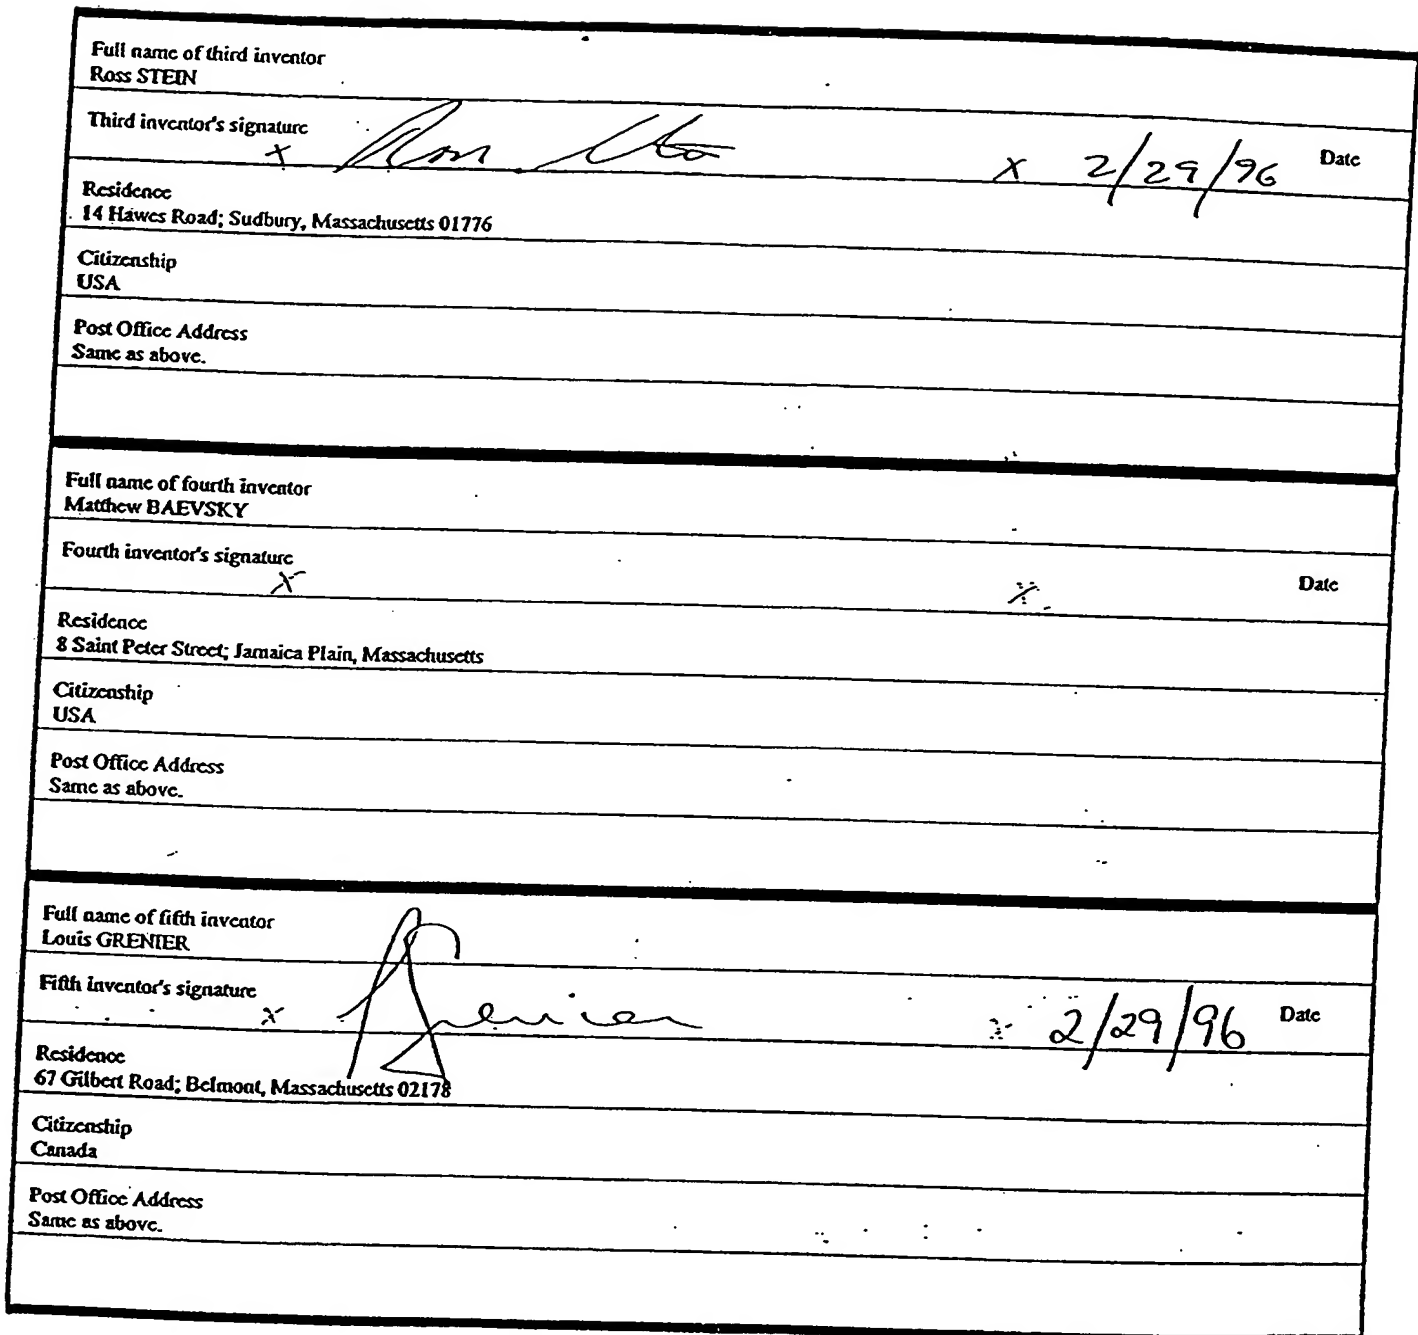 Full name of third inventor
Ross STEIN
Third inventor's signature
x Ross Stein x 2/29/96 Date
Residence
14 Hawes Road; Sudbury, Massachusetts 01776
Citizenship
USA
Post Office Address
Same as above.
Full name of fourth inventor
Matthew BAEVSKY
Fourth inventor's signature
x x Date
Residence
8 Saint Peter Street; Jamaica Plain, Massachusetts
Citizenship
USA
Post Office Address
Same as above.
Full name of fifth inventor
Louis GRENIER
Fifth inventor's signature
x L Grenier x 2/29/96 Date
Residence
67 Gilbert Road; Belmont, Massachusetts 02178
Citizenship
Canada
Post Office Address
Same as above.